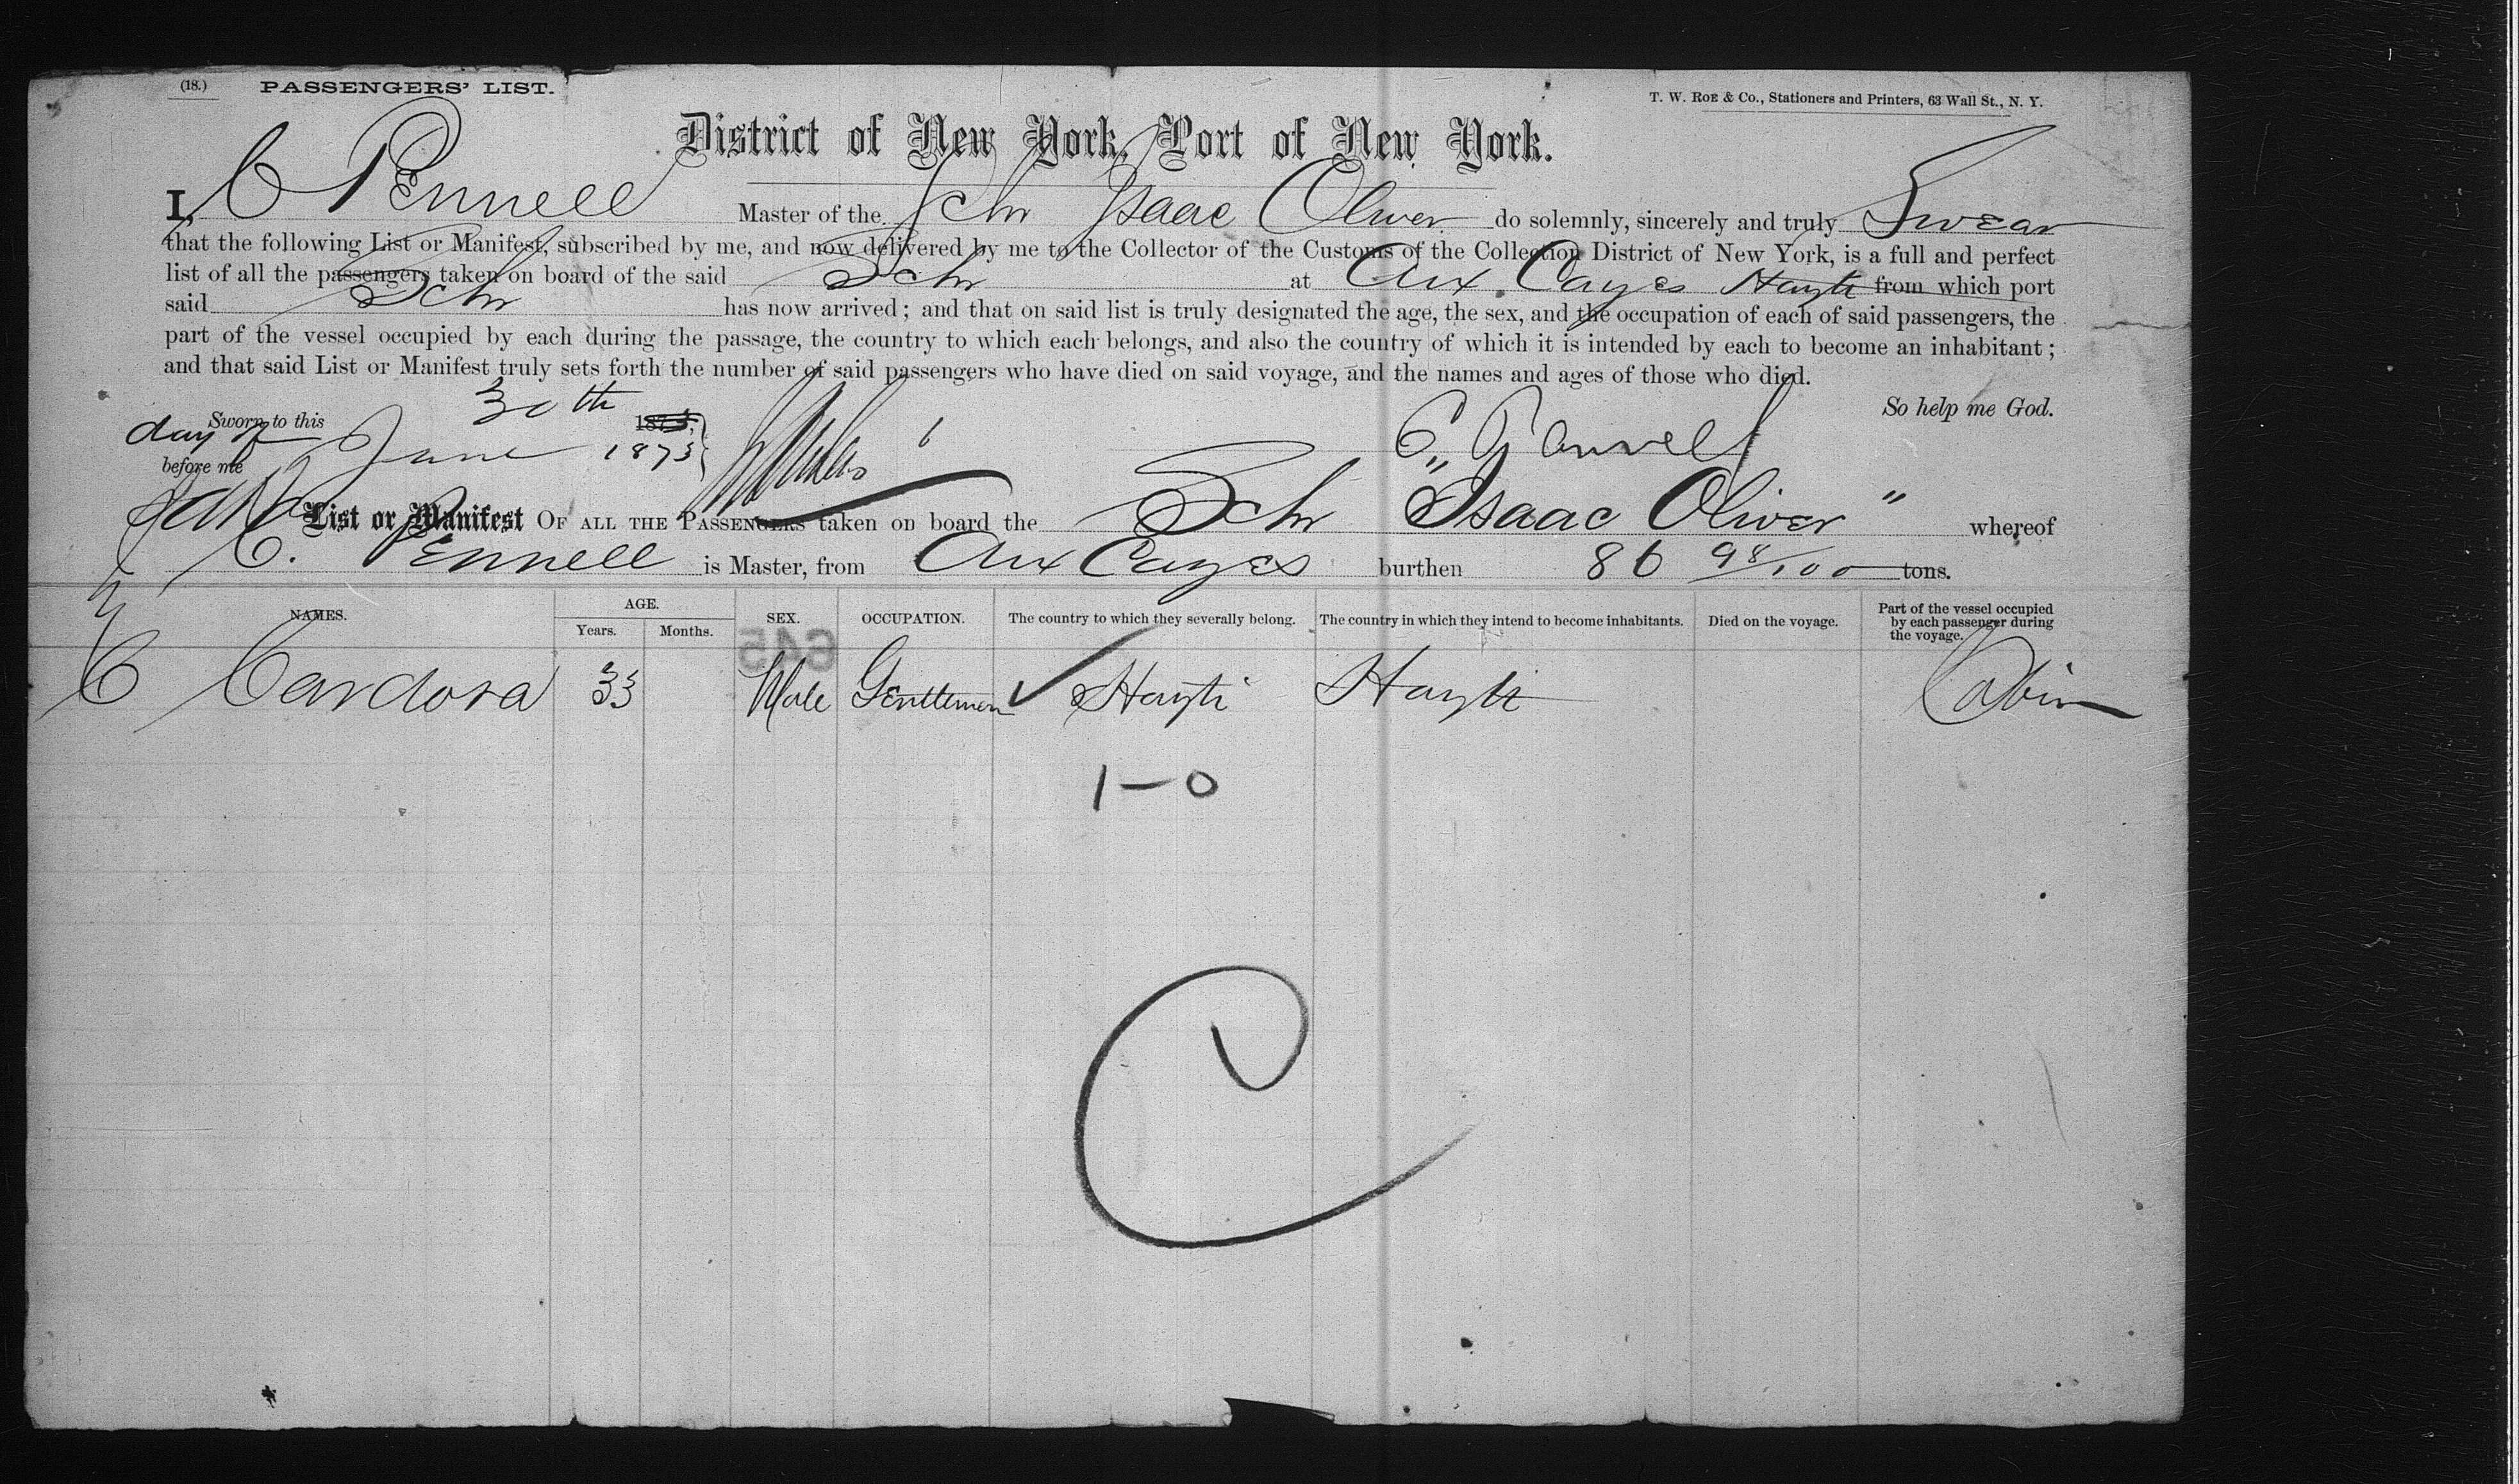 (18.) PASSENGERS' LIST.
T. W. ROE & Co., Stationers and Printers, 63 Wall St., N. Y.
District of New York, Port of New York.
I, C Pennell Master of the Schr Isaac Oliver do solemnly, sincerely and truly Swear
that the following List or Manifest, subscribed by me, and now delivered by me to the Collector of the Customs of the Collection District of New York, is a full and perfect
list of all the passengers taken on board of the said Schr at Aux Cayes Hayti from which port
said Schr has now arrived; and that on said list is truly designated the age, the sex, and the occupation of each of said passengers, the
part of the vessel occupied by each during the passage, the country to which each belongs, and also the country of which it is intended by each to become an inhabitant;
and that said List or Manifest truly sets forth the number of said passengers who have died on said voyage, and the names and ages of those who died.
Sworn to this 30th
So help me God.
day of June 1873
before me
C. Pennell
List or Manifest OF ALL THE PASSENGERS taken on board the Schr "Isaac Oliver" whereof
C. Pennell is Master, from Aux Cayes burthen 86 98/100 tons.
NAMES. AGE. Years. Months. SEX. OCCUPATION. The country to which they severally belong. The country in which they intend to become inhabitants. Died on the voyage. Part of the vessel occupied by each passenger during the voyage.
645
C Cardosa 33 Male Gentlemen Hayti Hayti Cabin
1-0
C